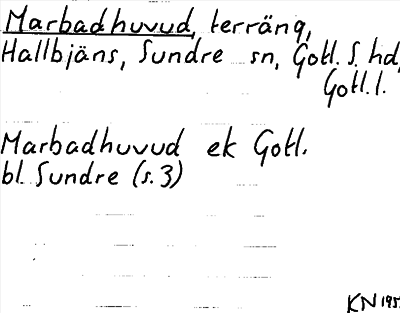 Marbadhuvud, terräng,
Hallbjäns, Sundre sn, Gotl. S. hd,
Gotl. l.
Marbadhuvud ek Gotl.
bl. Sundre (s. 3)
KN 195